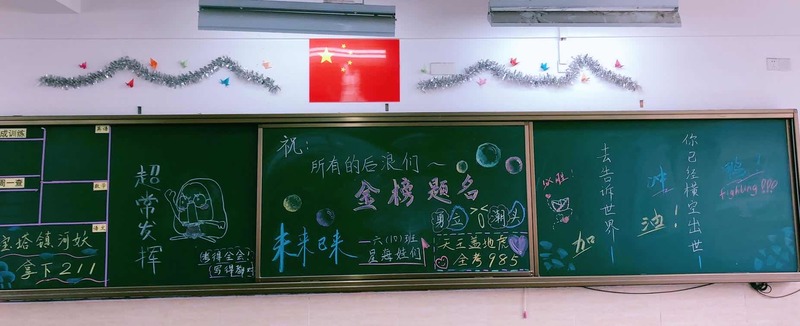 成训练
英语
周一查
数学
语文
宝塔镇河妖
拿下211
超常发挥
考得全会!
写得都对
祝:
所有的后浪们~
金榜题名
勇立 >0< 潮头
未来已来
—六(10)班
星海娃们
天王盖地虎
全考985
必胜!
你已经横空出世—
去告诉世界—
冲鸭!
加油!
fighting!!!